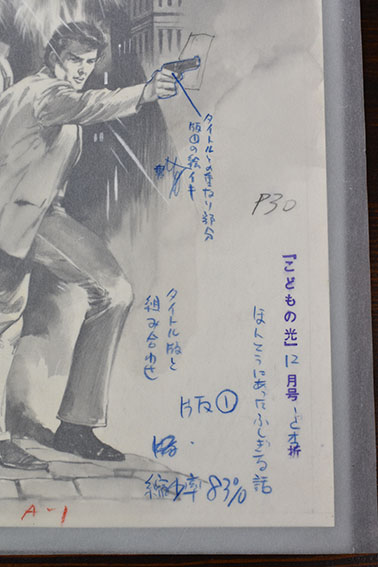 『こどもの光』12月号
ほんとうにあったふしぎな話
P30
タイトルとの重なり部分
版①の絵イキ
タイトル版と
組み合わせ
版①
縮小率83%
A-1